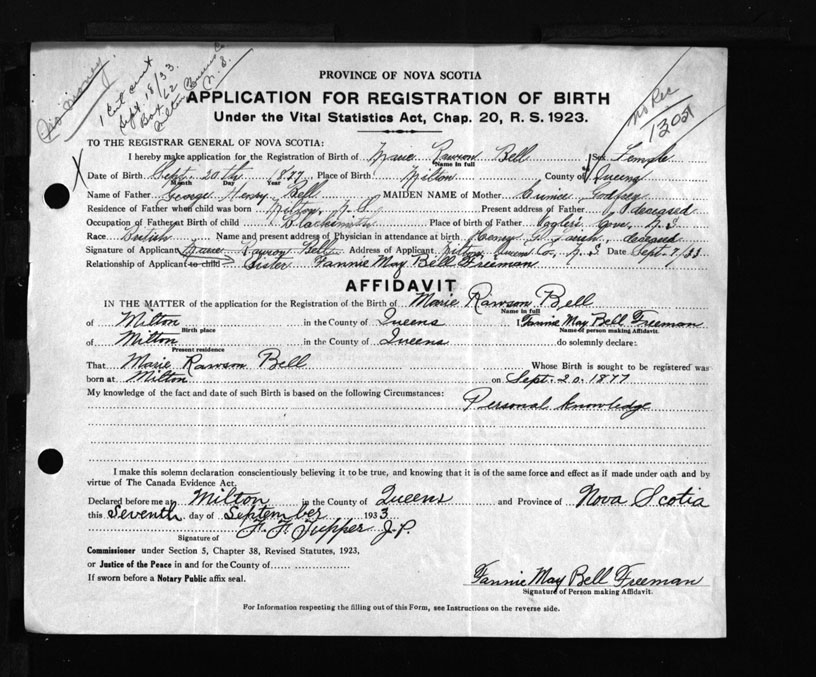 1 Cert sent
Sept. 18/33.
Box 62
Milton Queens Co
N. S.
No Rec
PROVINCE OF NOVA SCOTIA
APPLICATION FOR REGISTRATION OF BIRTH
Under the Vital Statistics Act, Chap. 20, R. S. 1923.
TO THE REGISTRAR GENERAL OF NOVA SCOTIA:
I hereby make application for the Registration of Birth of Marie Rawson Bell Sex Female
Name in full
Date of Birth Sept. 20th 1877 Place of Birth Milton County of Queens
Month Day Year
Name of Father George Henry Bell MAIDEN NAME of Mother Eunice Godfrey
Residence of Father when child was born Milton, N. S. Present address of Father Deceased
Occupation of Father at Birth of child Blacksmith Place of Birth of Father Cove, N. S
Race British Name and present address of Physician in attendance at birth Henry deceased
Signature of Applicant Marie Rawson Bell Address of Applicant Milton, Queens Co, N. S. Date Sept. 7/33
Relationship of Applicant to child Sister Fannie May Bell Freeman
AFFIDAVIT
IN THE MATTER of the application for the Registration of the Birth of Marie Rawson Bell
Name in full
of Milton in the County of Queens I Fannie May Bell Freeman
Birth place Name of person making Affidavit.
of Milton in the County of Queens do solemnly declare:
Present residence
That Marie Rawson Bell Whose Birth is sought to be registered was
born at Milton on Sept. 20. 1877
My knowledge of the fact and date of such Birth is based on the following Circumstances: Personal knowledge
I make this solemn declaration conscientiously believing it to be true, and knowing that it is of the same force and effect as if made under oath and by
virtue of The Canada Evidence Act.
Declared before me at Milton in the County of Queens and Province of Nova Scotia
this Seventh day of September 1933
F. F. Tupper J.P.
Signature of
Commissioner under Section 5, Chapter 38, Revised Statutes, 1923,
or Justice of the Peace in and for the County of
If sworn before a Notary Public affix seal.
Fannie May Bell Freeman
Signature of Person making Affidavit.
For Information respecting the filling out of this Form, see Instructions on the reverse side.